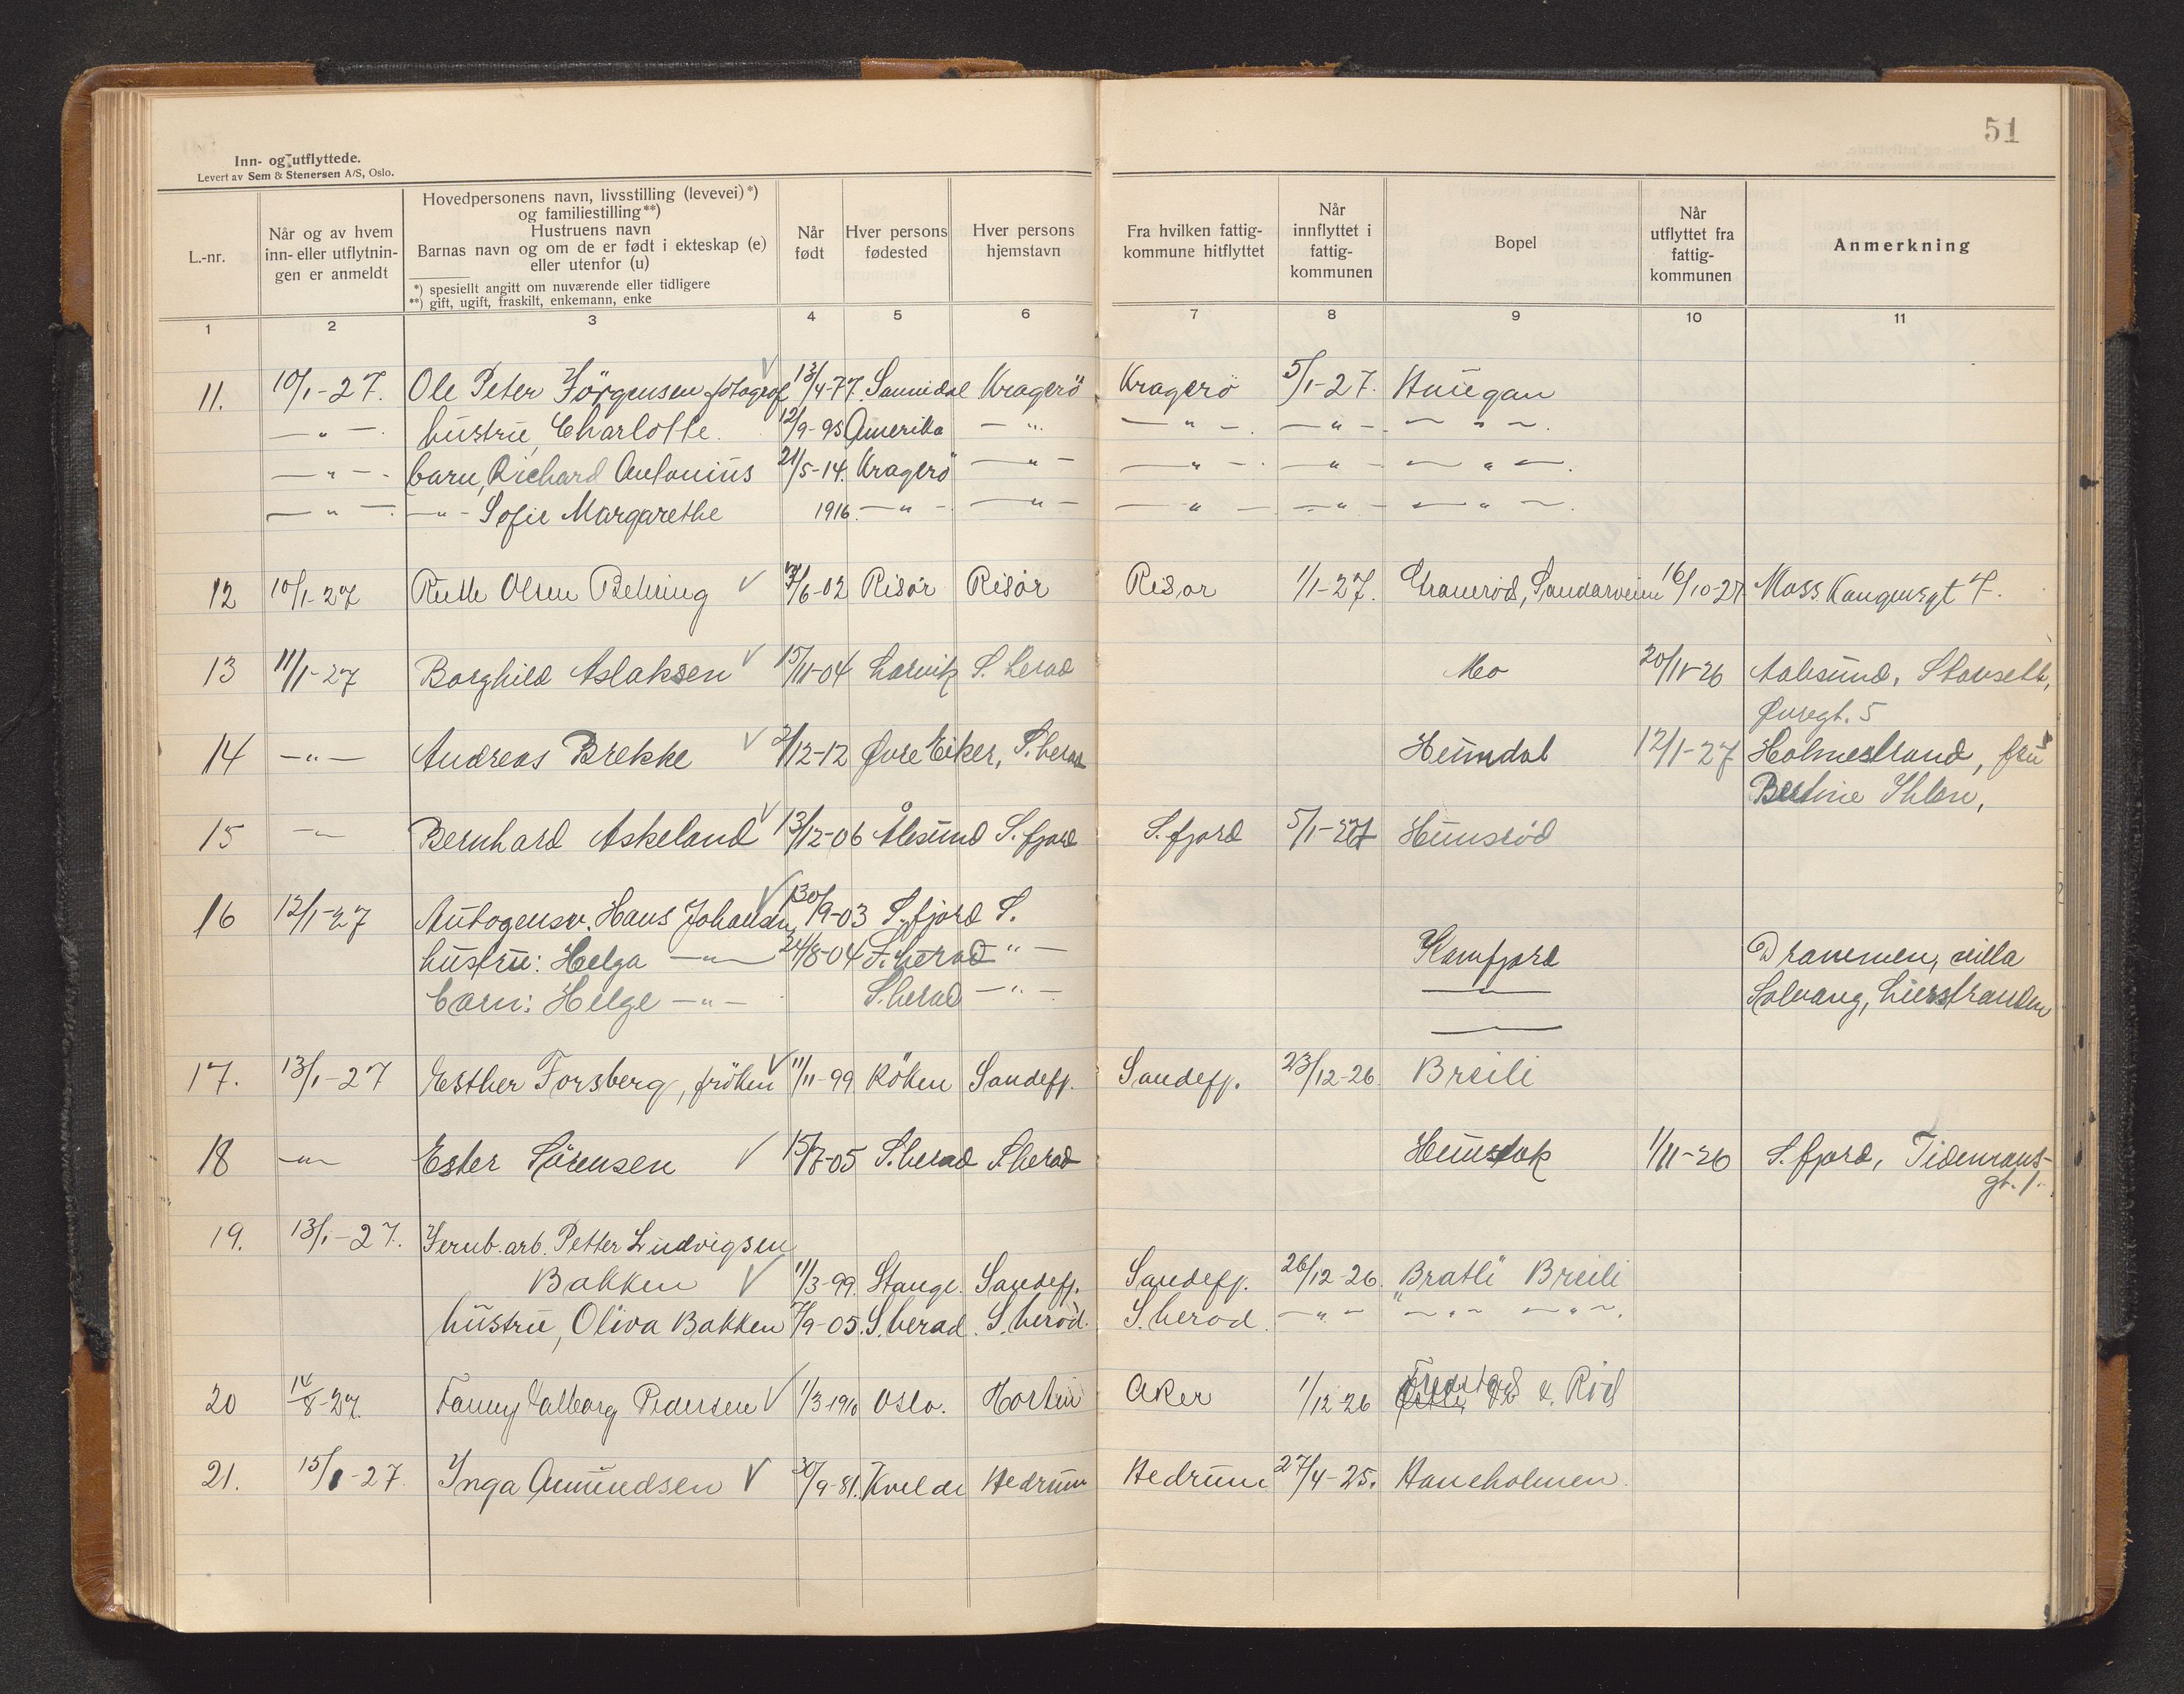 51
Inn- og utflyttede.
Levert av Sem & Stenersen A/S, Oslo.
L.-nr.
Når og av hvem inn- eller utflytnin-gen er anmeldt
Hovedpersonens navn, livsstilling (levevei)*)
og familiestilling**)
Hustruens navn
Barnas navn og om de er født i ekteskap (e)
eller utenfor (u)
*) spesiellt angitt om nuværende eller tidligere
**) gift, ugift, fraskilt, enkemann, enke
Når født
Hver persons fødested
Hver persons hjemstavn
Fra hvilken fattig-kommune hitflyttet
Når innflyttet i fattig-kommunen
Bopel
Når utflyttet fra fattig-kommunen
Anmerkning
1 2 3 4 5 6 7 8 9 10 11
11. 10/1-27. Ole Peter Jörgensen, fotograf 13/4-77. Sannidal Kragerö Kragerö 5/1-27. Haugan
—"— hustru, Charlotte. 12/9-95 Amerika —"— —"— —"— —"—
—"— barn, Richard Antonius 21/5-14. Kragerö —"— —"— —"— —"—
—"— —"— Sofie Margarethe 1916. —"— —"— —"— —"— —"—
12 10/1-27 Ruth Olsen Behring 7/6-02 Risör Risör Risör 1/1-27. Granerød, Sandarveien 16/10-27 Moss. Kongensgt 7.
13 11/1-27 Borghild Aslaksen 15/11-04 Larvik S. herad Mo 20/11-26 Aalesund, Stavseth,
Øvregt. 5
14 —"— Andreas Brekke 2/12-12 Øvre Eiker, S. herad Heimdal 12/1-27 Holmestrand, fru
Bertine Ihlen,
15 —"— Bernhard Askeland 13/12-06 Ålesund S. fjord S. fjord 5/1-27 Hunsrød
16 12/1-27 Autogensv. Hans Johansen 30/9-03 S. fjord S.
hustru: Helga —"— 24/8-04 S. herad —"— Kamfjord Drammen, villa
barn: Helge —"— S. herad —"— —"— Solvang, Lierstranden
17. 13/1-27 Esther Forsberg, fröken 11/11-99 Röken Sandefj. Sandefj. 23/12-26. Breili
18 —"— Ester Sörensen 15/7-05 S. herad S. herad Hunstok 1/11-26 S. fjord, Tidemans-
gt. 1.
19. 13/1-27. Jernb. arb. Petter Ludvigsen
Bakken 11/3-99. Stange. Sandefj. Sandefj. 26/12-26. "Bratli" Breili
hustru, Oliva Bakken 7/9-05. S. herad. S. herad. S. herad. —"— —"— —"—
20 14/8-27. Fanny Valborg Pedersen 1/3-1910 Oslo. Horten Aker 1/12-26 v. Röd
21. 15/1-27. Inga Amundsen 30/9-81. Kvelde Hedrum Hedrum 27/4-25. Haneholmen.